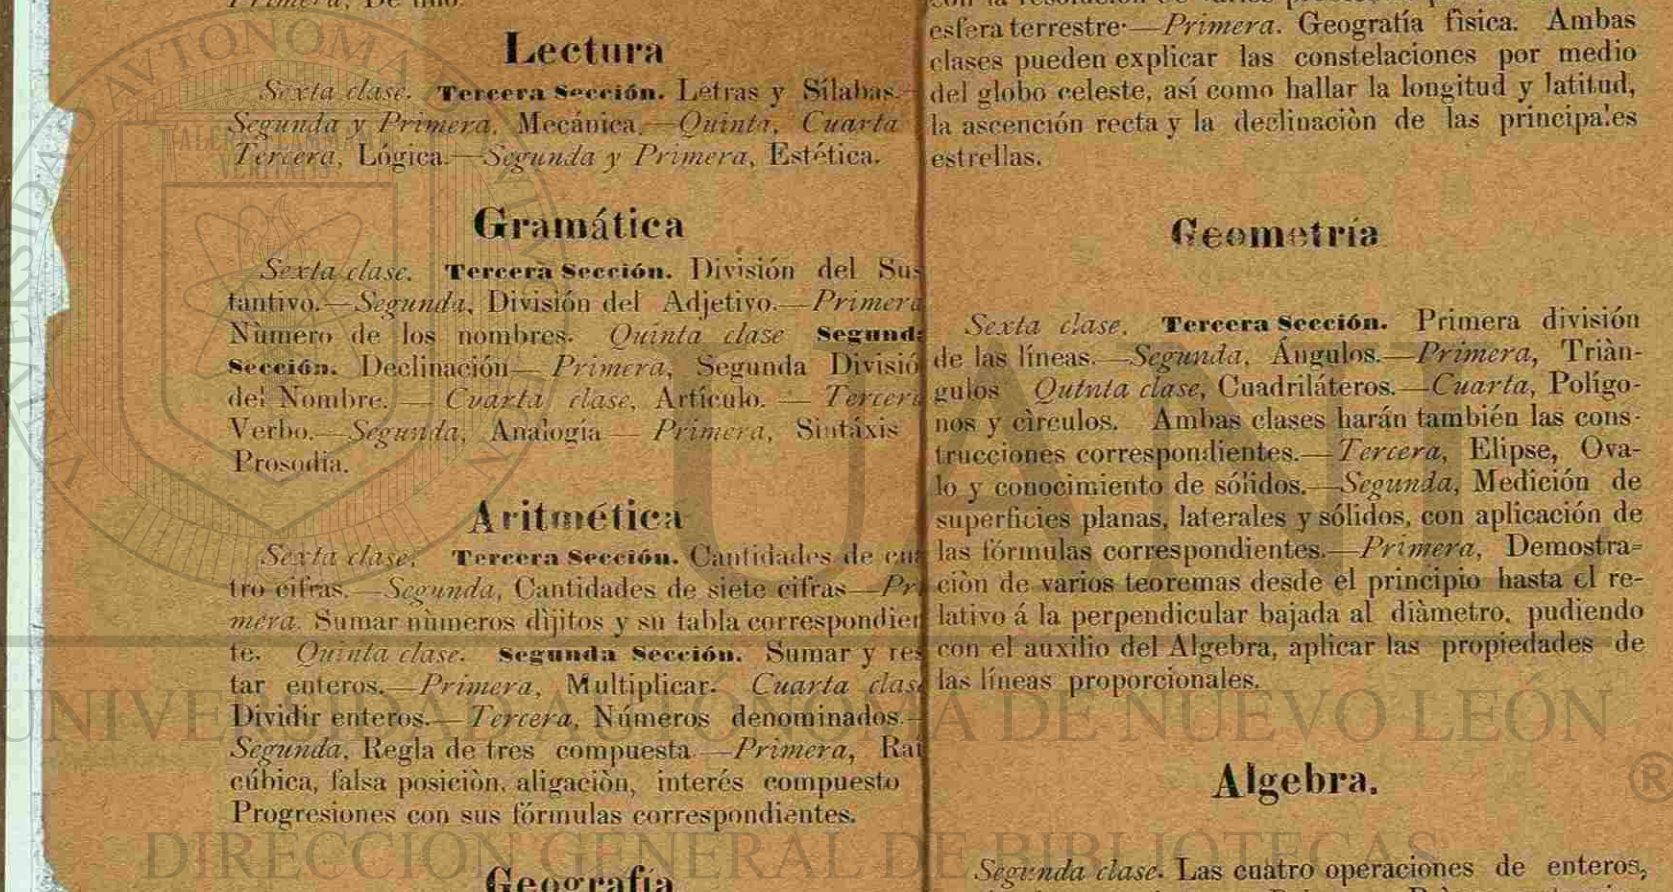 Primera, De uno.
Lectura
Sexta clase. Tercera Sección. Letras y Sílabas.—
Segunda y Primera, Mecánica.—Quinta, Cuarta
Tercera, Lógica.—Segunda y Primera, Estética.
Gramática
Sexta clase. Tercera Sección. División del Sus
tantivo.—Segunda, División del Adjetivo.—Primera
Nùmero de los nombres. Quinta clase Segunda
Sección. Declinación— Primera, Segunda Divisió
del Nombre. — Cuarta clase, Artículo. — Tercera
Verbo.—Segunda, Analogía — Primera, Sintáxis
Prosodia.
Aritmética
Sexta clase. Tercera Sección. Cantidades de cua
tro cifras.—Segunda, Cantidades de siete cifras—Pri
mera. Sumar nùmeros dìjitos y su tabla correspondien
te. Quinta clase. Segunda Sección. Sumar y res
tar enteros.—Primera, Multiplicar. Cuarta clase
Dividir enteros.—Tercera, Números denominados.—
Segunda, Regla de tres compuesta.—Primera, Raí
cúbica, falsa posiciòn, aligaciòn, interés compuesto
Progresiones con sus fórmulas correspondientes.
Geografía
esfera terrestre.—Primera. Geografía fìsica. Ambas
clases pueden explicar las constelaciones por medio
del globo celeste, así como hallar la longitud y latitud,
la ascención recta y la declinaciòn de las principales
estrellas.
Geometría
Sexta clase. Tercera Sección. Primera división
de las líneas.—Segunda, Ángulos.—Primera, Triàn-
gulos Quinta clase, Cuadriláteros.—Cuarta, Polígo-
nos y cìrculos. Ambas clases harán también las cons-
trucciones correspondientes.—Tercera, Elipse, Ova-
lo y conocimiento de sólidos.—Segunda, Medición de
superficies planas, laterales y sólidos, con aplicación de
las fórmulas correspondientes.—Primera, Demostra-
ciòn de varios teoremas desde el principio hasta el re-
lativo á la perpendicular bajada al diàmetro, pudiendo
con el auxilio del Algebra, aplicar las propiedades de
las líneas proporcionales.
Algebra.
Segunda clase. Las cuatro operaciones de enteros,
UANL
UNIVERSIDAD AUTÓNOMA DE NUEVO LEÓN
®
DIRECCIÓN GENERAL DE BIBLIOTECAS